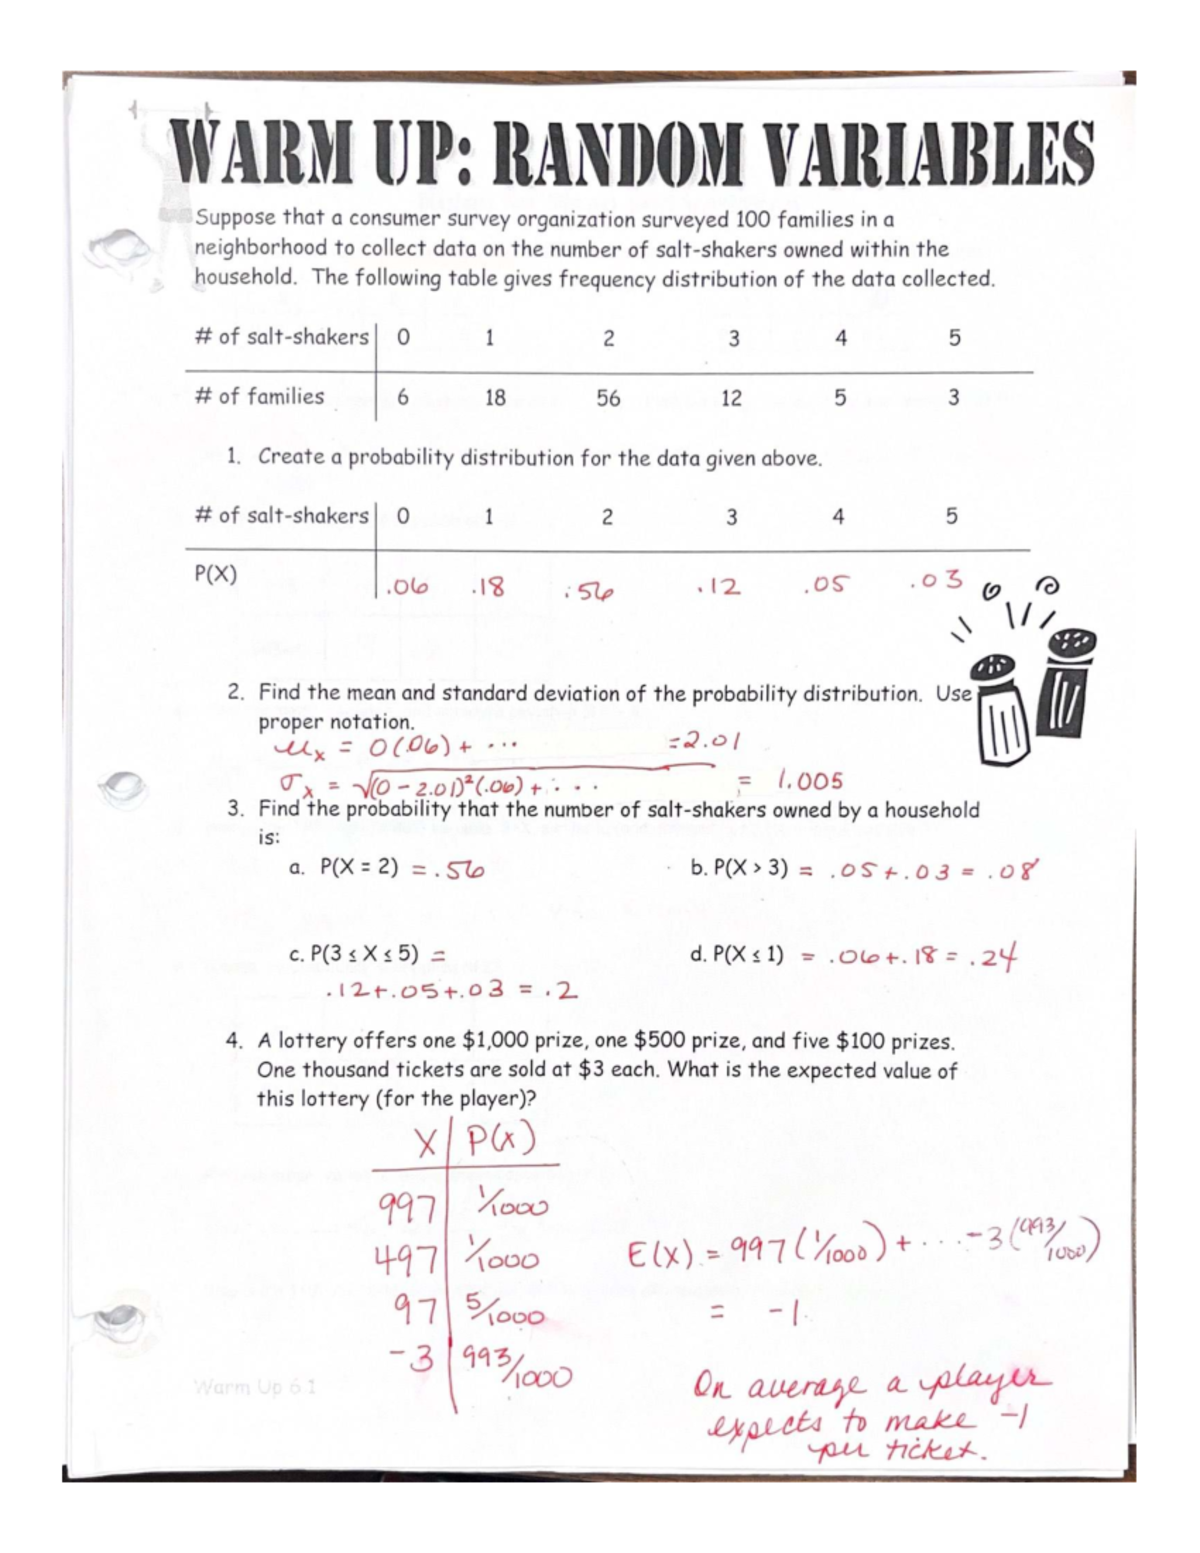 WARM UP: RANDOM VARIABLES
Suppose that a consumer survey organization surveyed 100 families in a
neighborhood to collect data on the number of salt-shakers owned within the
household. The following table gives frequency distribution of the data collected.
# of salt-shakers 0 1 2 3 4 5
# of families 6 18 56 12 5 3
1. Create a probability distribution for the data given above.
# of salt-shakers 0 1 2 3 4 5
P(X) .06 .18 .56 .12 .05 .03
2. Find the mean and standard deviation of the probability distribution. Use
proper notation.
μx = 0(.06) + ... =2.01
σx = √(0 - 2.01)²(.06) + ... = 1.005
3. Find the probability that the number of salt-shakers owned by a household
is:
a. P(X = 2) = .56 b. P(X > 3) = .05+.03 = .08
c. P(3 ≤ X ≤ 5) = d. P(X ≤ 1) = .06+.18 = .24
.12+.05+.03 = .2
4. A lottery offers one $1,000 prize, one $500 prize, and five $100 prizes.
One thousand tickets are sold at $3 each. What is the expected value of
this lottery (for the player)?
X P(x)
997 1/1000
497 1/1000
97 5/1000
-3 993/1000
E(X) = 997(1/1000) + ... -3(993/1000)
= -1.
On average a player
expects to make -1
per ticket.
Warm Up 6.1